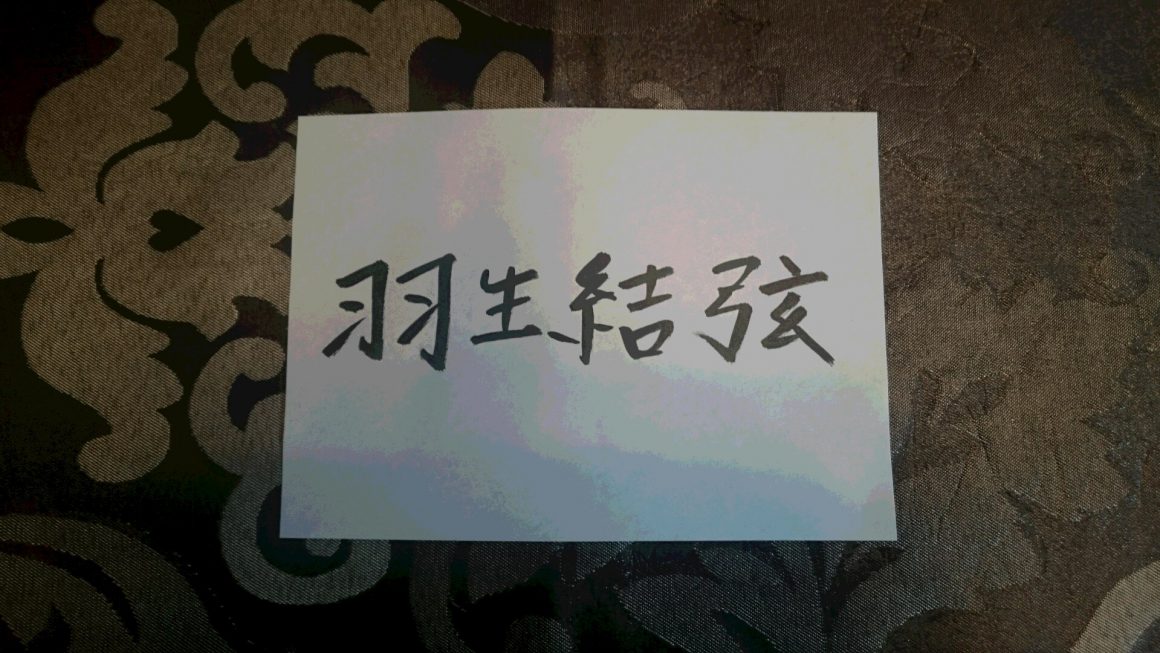 羽生結弦